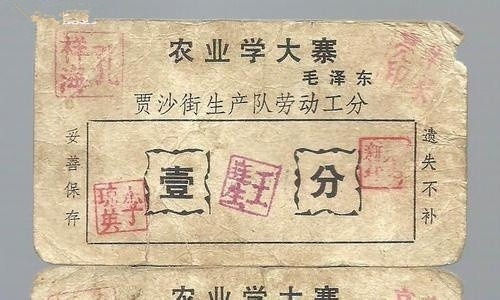 农业学大寨
毛泽东
贾沙街生产队劳动工分
妥善保存
壹
分
遗失不补
孔祥海
农业学大寨